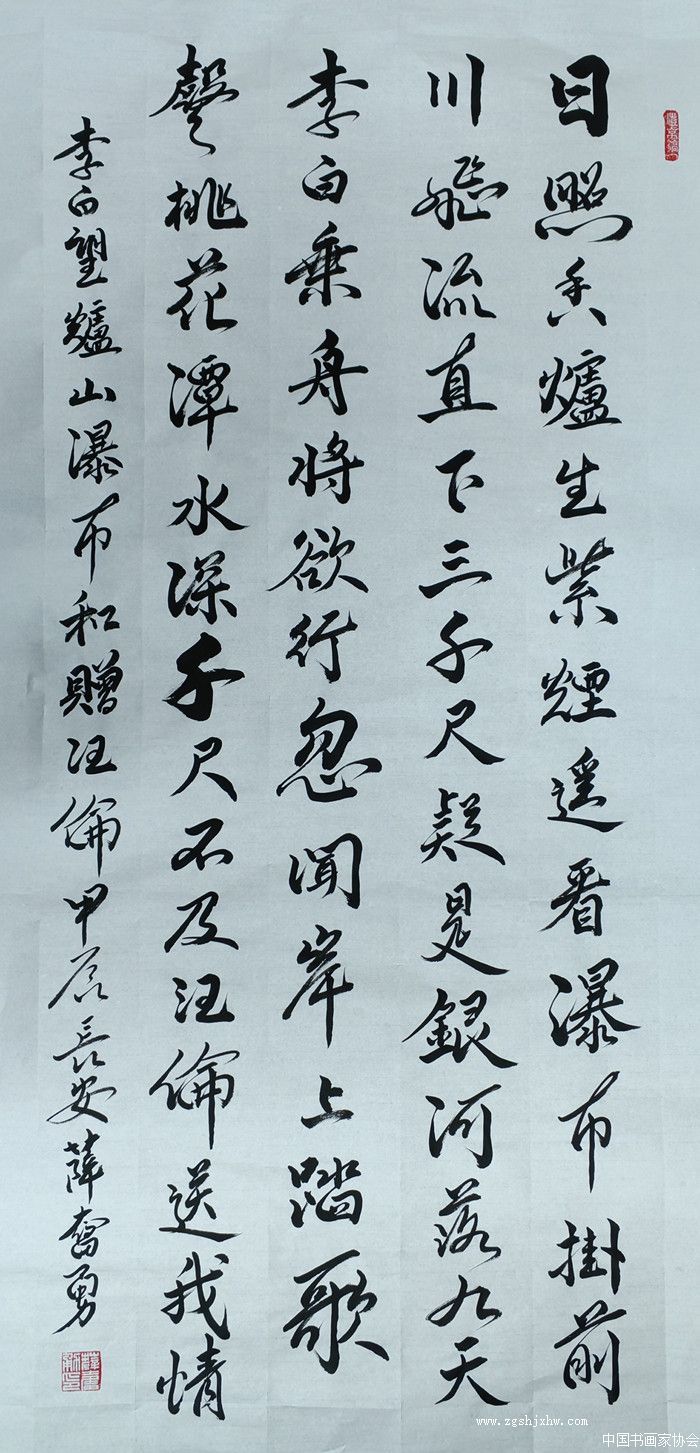 日照香爐生紫煙遥看瀑布掛前
川飛流直下三千尺疑是銀河落九天
李白乘舟將欲行忽聞岸上踏歌
聲桃花潭水深千尺不及汪倫送我情
李白望爐山瀑布和贈汪倫甲辰長安薛奮勇
www.zgshjxhw.com
中国书画家协会